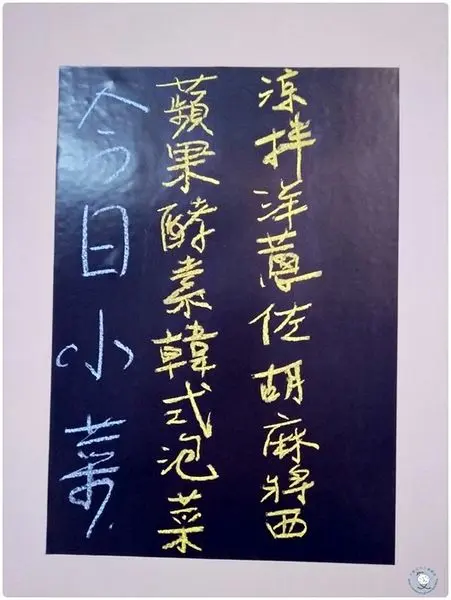 今日小菜
蘋果酵素韓式泡菜
涼拌洋蔥佐胡麻醬